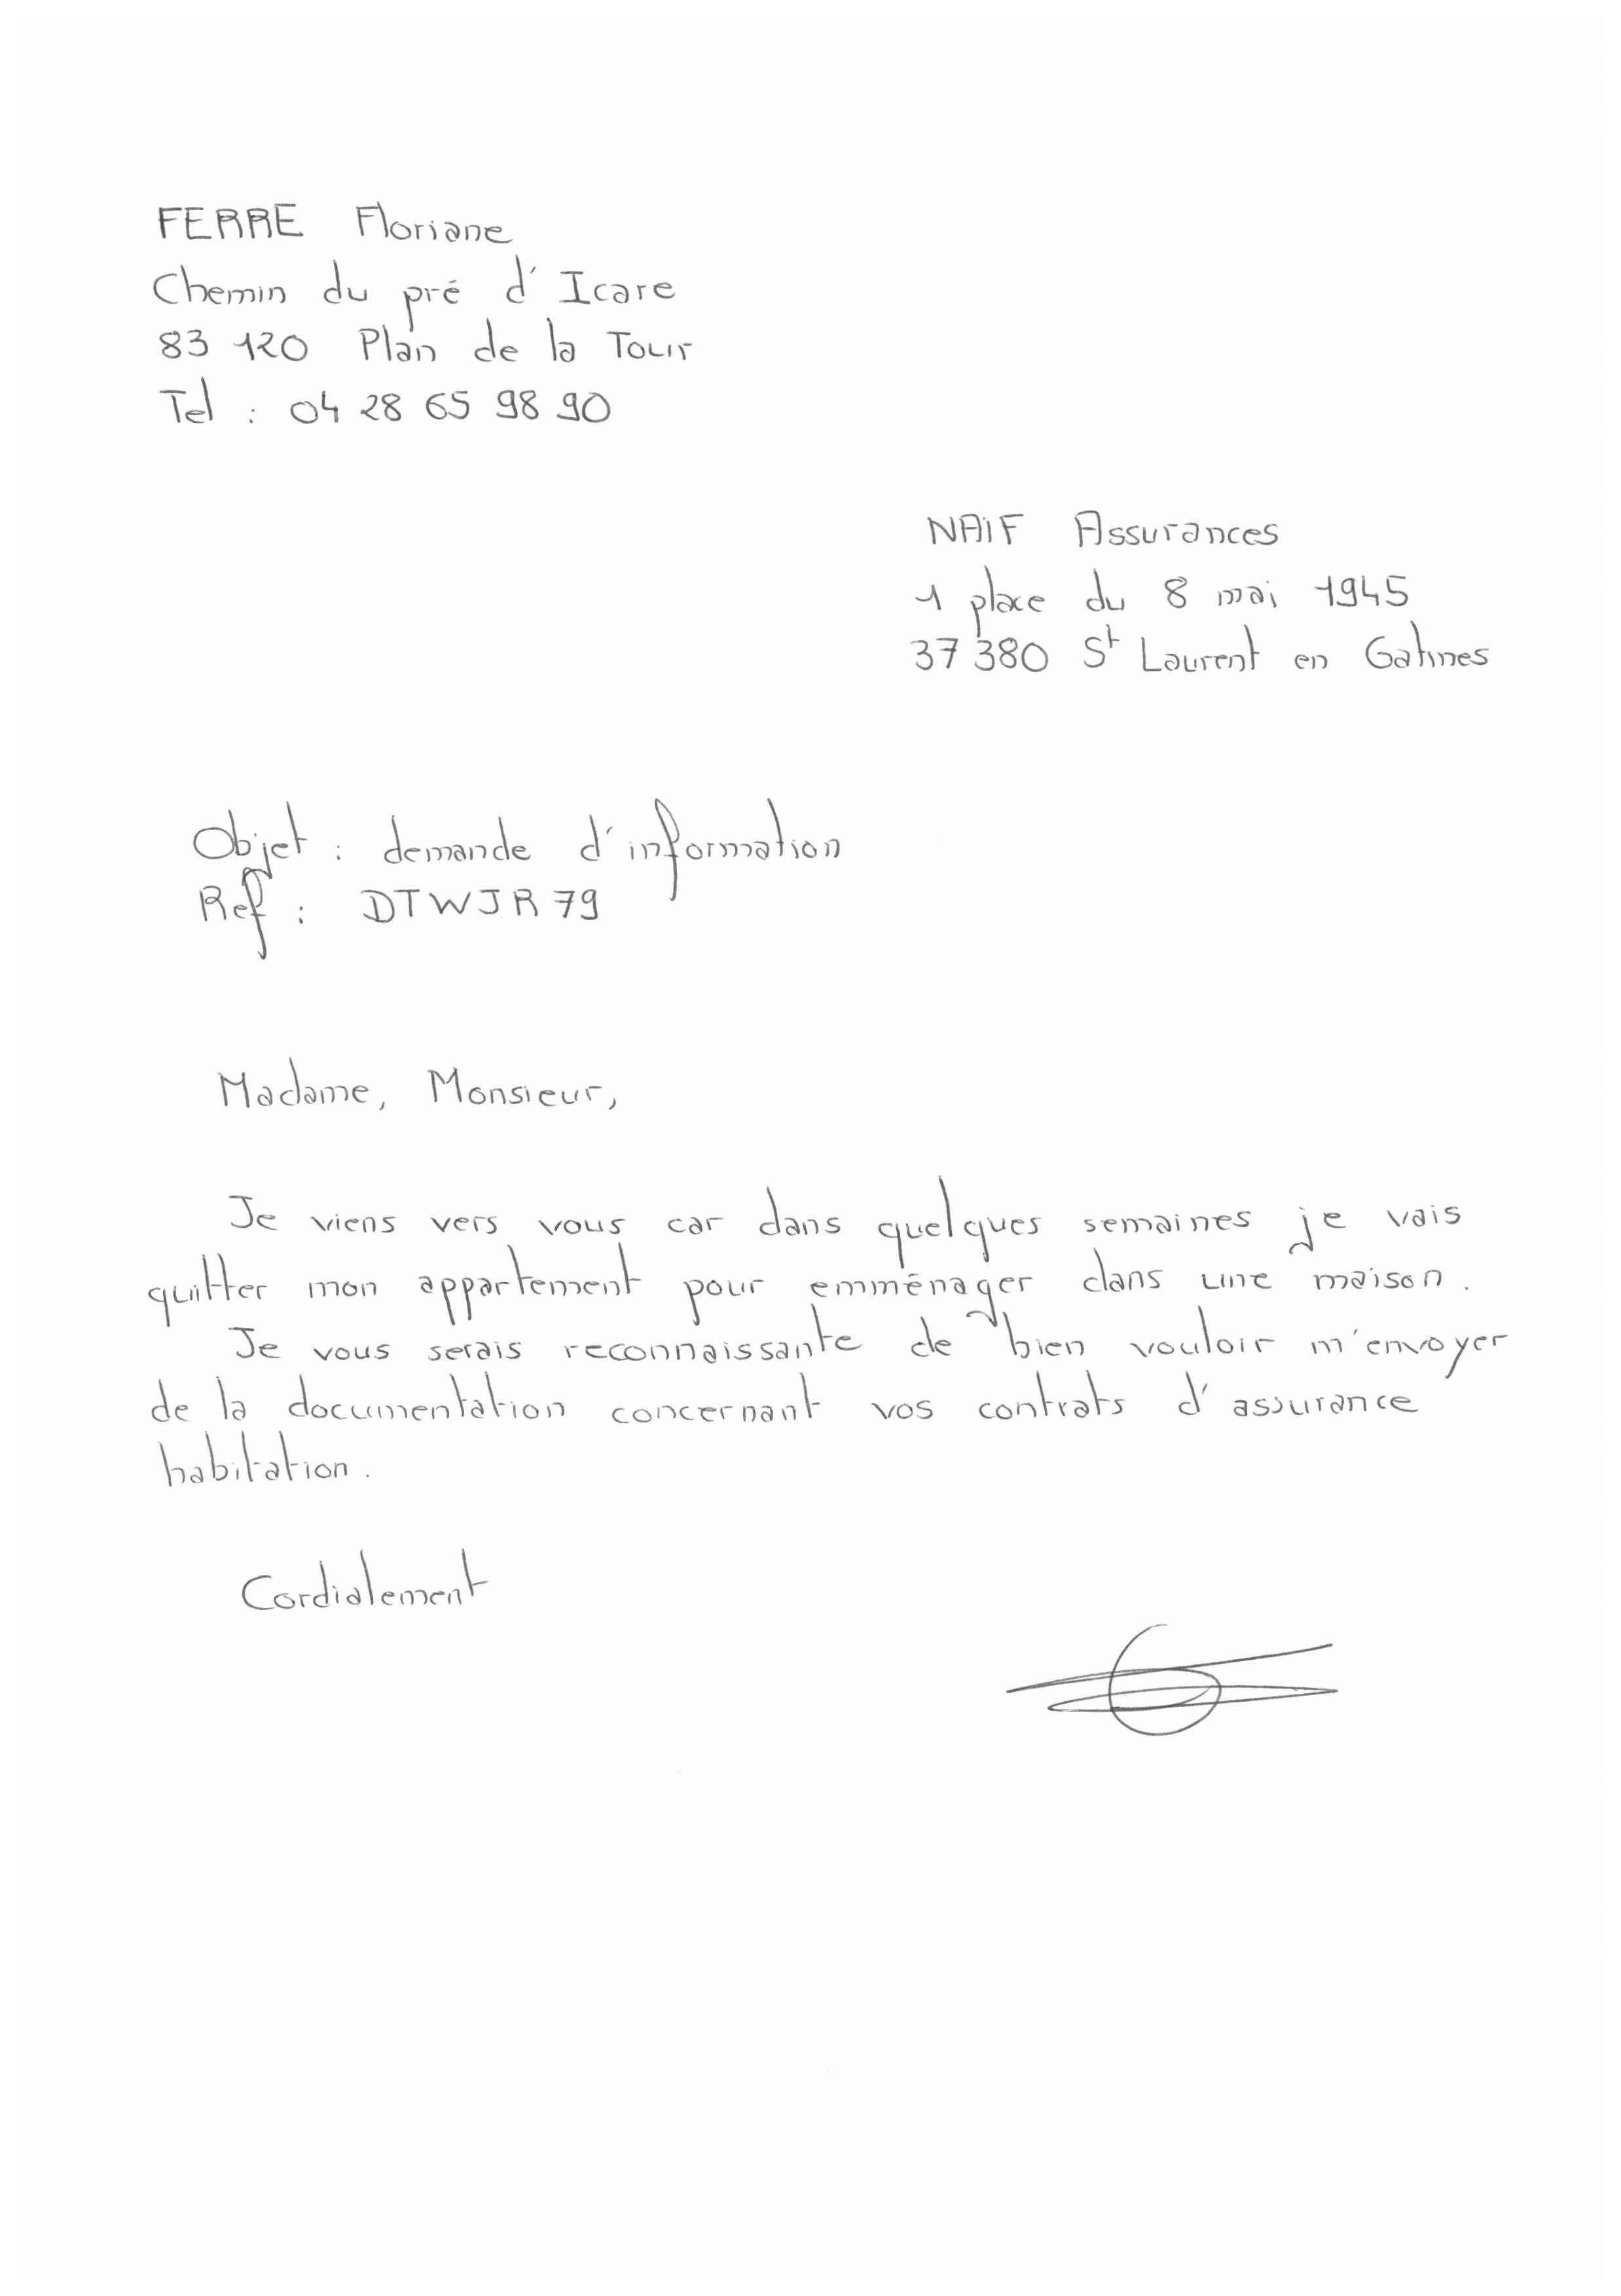 FERRE Floriane
Chemin du pré d'Icare
83 120 Plan de la Tour
Tel : 04 28 65 98 90
NAIF Assurances
1 place du 8 mai 1945
37 380 St Laurent en Gatines
Objet : demande d'information
Ref : DTWJR79
Madame, Monsieur,
Je viens vers vous car dans quelques semaines je vais
quitter mon appartement pour emménager dans une maison.
Je vous serais reconnaissante de bien vouloir m'envoyer
de la documentation concernant vos contrats d'assurance
habitation.
Cordialement